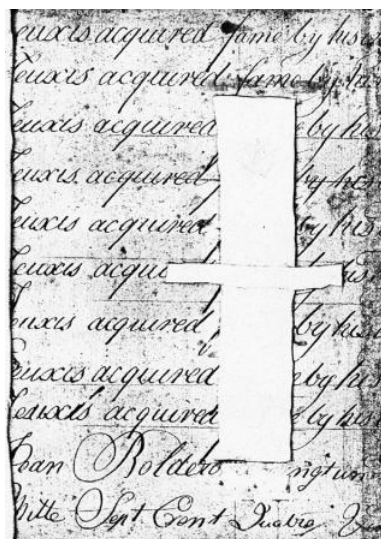 euxis acquired fame by his
euxis acquired fame by his
euxis acquired by his
euxis acquired by his
euxis acquired by his
euxis acqui his
euxis acquired by his
euxis acquired by his
euxis acquired by his
Boldero
Sept Cent Quatre